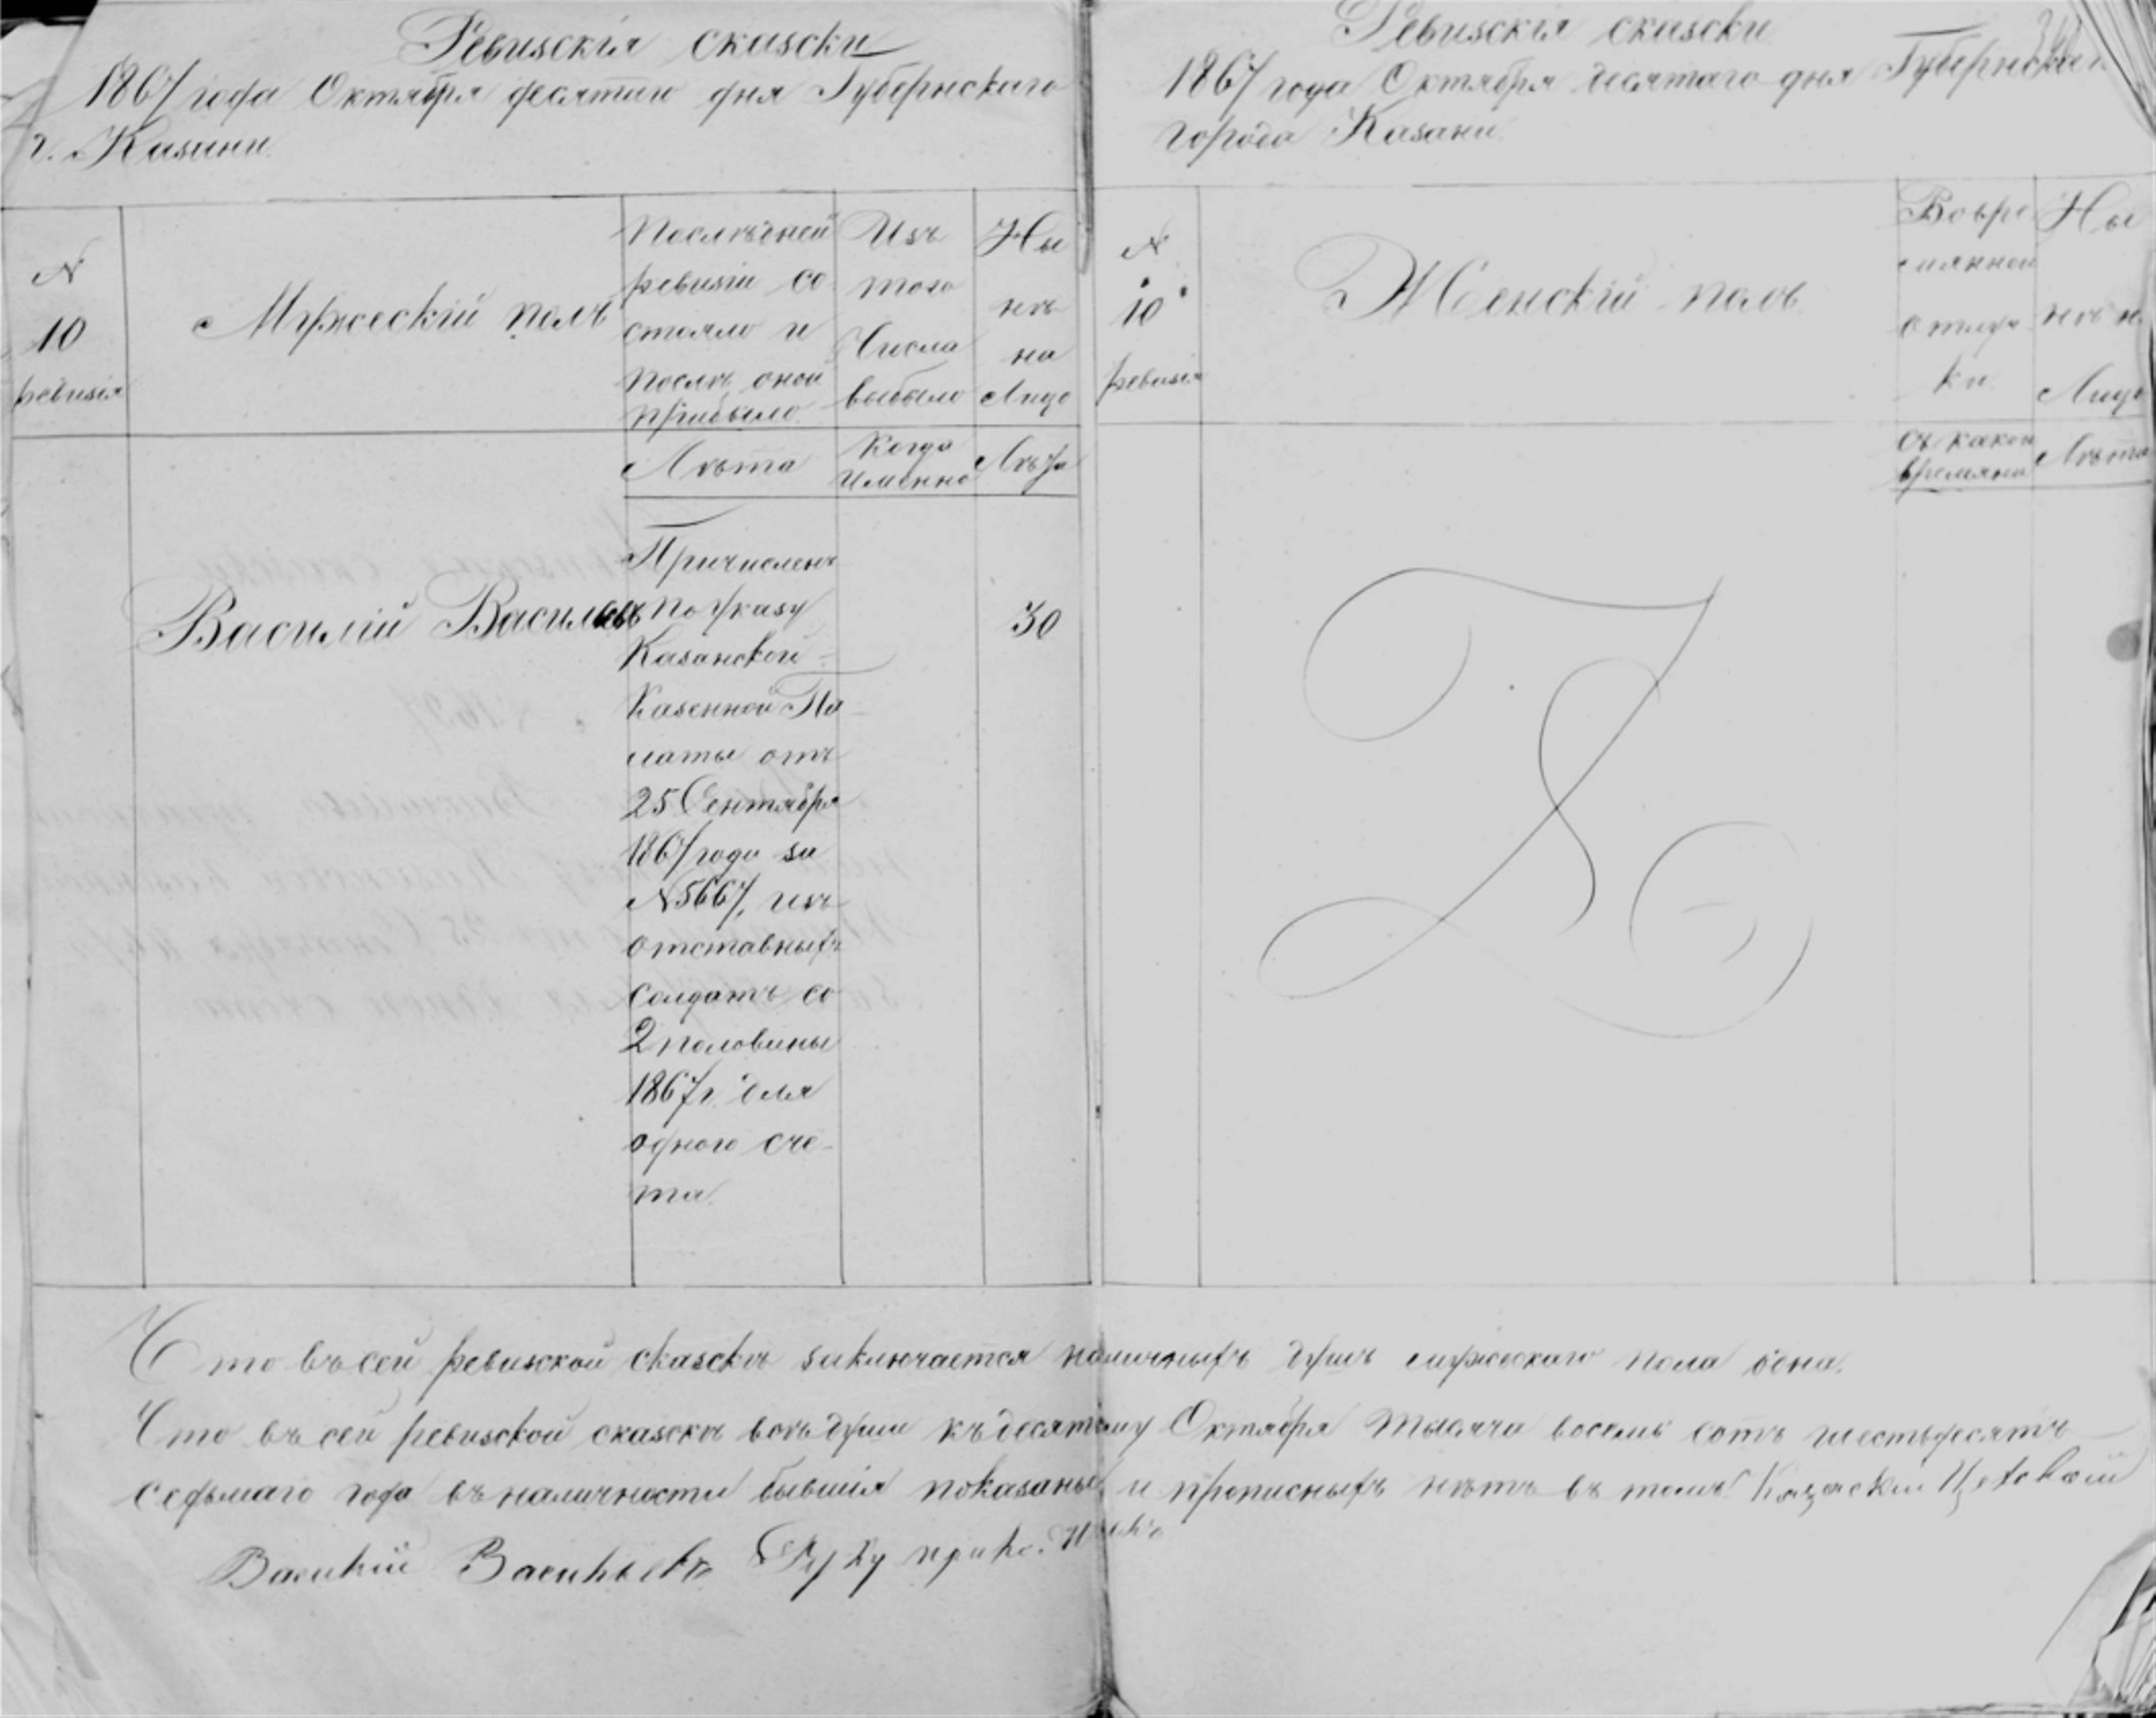 Ревизскія сказски
1867 года Октября десятаго дня Губернскаго
г. Казани
N
10
ревизія
Мужескій полъ
Последней
ревизіи со
стояло и
послѣ оной
прибыло
Изъ
того
числа
выбыло
Ны
нѣ
на
лицо
Лѣта
Когда
именно
Лѣта
Василій Васильевъ
Причисленъ
по указу
Казанской
Казенной Па
латы отъ
25 Сентября
1867 года за
N 5667, изъ
отставныхъ
солдатъ со
2 половины
1867 г. для
одного сче-
та.
30
Ревизскія сказски
1867 года Октября десятаго дня Губернскаго
города Казани
N
10
ревизія
Женскій полъ
Вовре
мянной
отлуч
ки
Ны
нѣ н
Лицо
Съ какого
времяни
Лѣта
Что въ сей ревизской сказскѣ заключается наличныхъ душъ мужескаго пола одна.
Что въ сей ревизской сказскѣ всѣ души къ десятому Октября тысяча восемь сотъ шестьдесятъ
седьмаго года въ наличности бывшія показаны и прописныхъ нѣтъ въ томъ Казаскии Цеховой
Василій Васильевъ Руку приложилъ